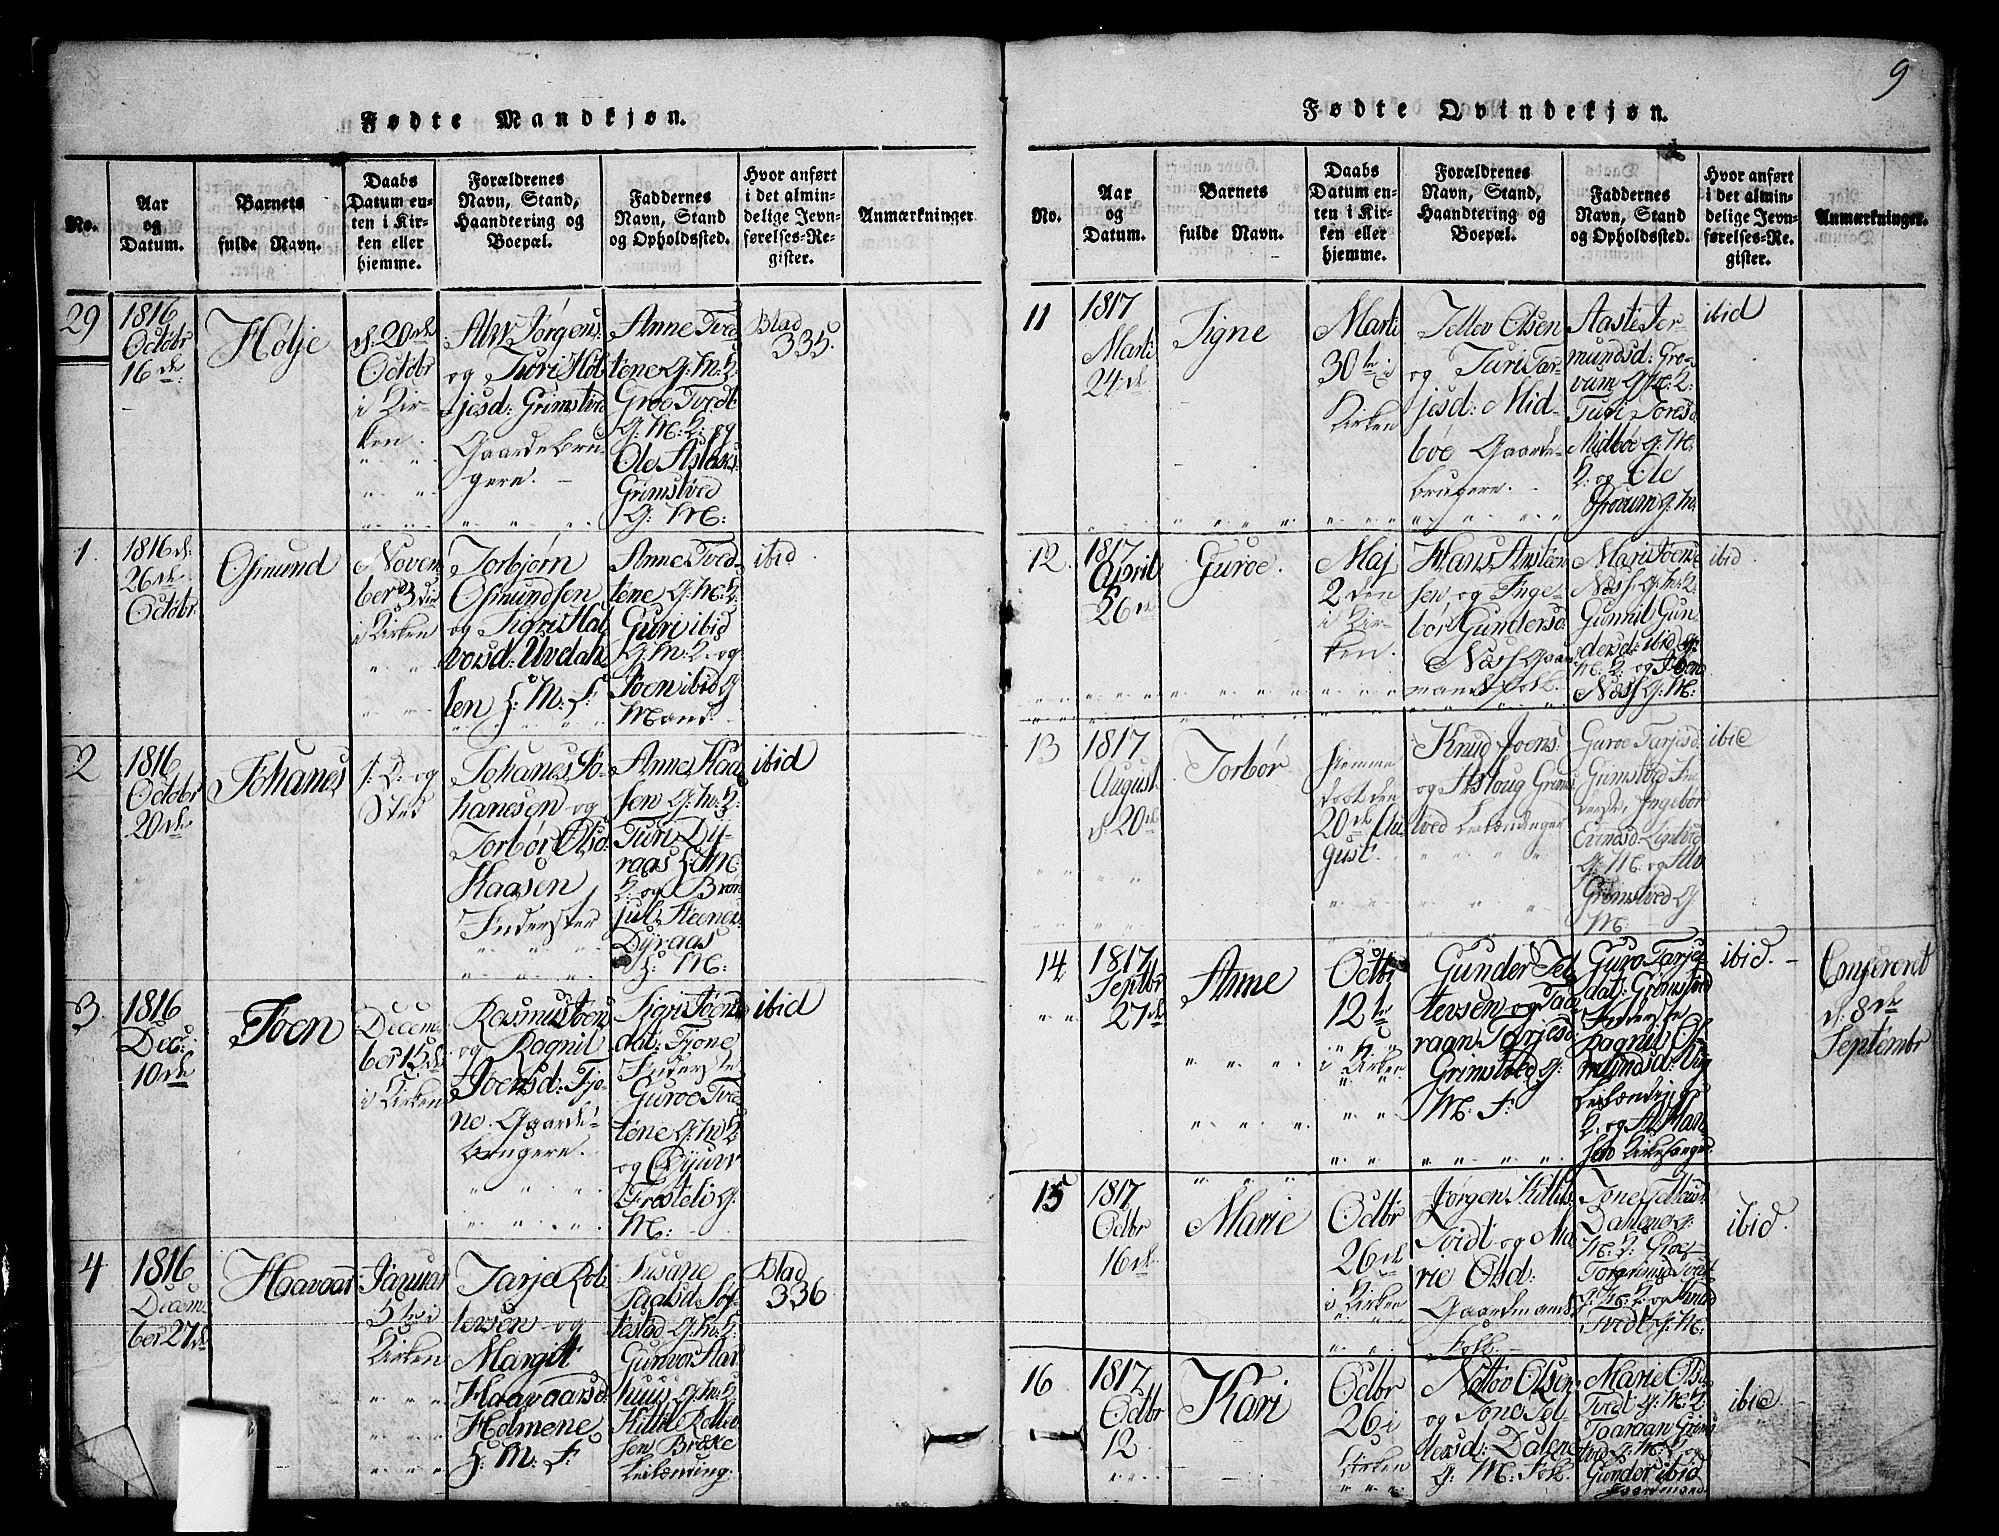 9
Fødte Mandkjøn.
No.
Aar
og
Datum.
Barnets
fulde Navn.
Daabs
Datum en-
ten i Kir-
ken eller
hjemme.
Forældrenes
Navn, Stand,
Haandtering og
Boepæl.
Faddernes
Navn, Stand
og Opholdssted.
Hvor anført
i det almin-
delige Jevn-
førelses-Re-
gister.
Anmærkninger
29
1816
Octobr
16 de
Hølje
d. 20 de
Octobr
i Kir-
ken.
Alw Jørgens.
og Turi Høl-
jesd: Grimstved
Gaardebru-
gere.
Anne Tved-
tene G: M: K:
Groe Tvedt
G: M: K: og
Ole Aslaks.
Grimstved
G: M:
Blad
335.
1.
1816 d:
26 de
Octobr
Osmund
Novem
ber 3 die
i Kirken
Torbjørn
Osmundsen
og Sigri Hal-
vorsd: Uvdah-
len H: M: F:
Anne Tved-
tene G: M: K:
Guri ibid
G: M: K: og
Joen ibid G
Mand.
ibid
2
1816
Octobr
20 de
Johanes
s: D: og
Sted
Johanes Jo-
hanesen og
Torbør Olsd
Kaasen
Inderster
Anne Kaa-
sen G: M: K:
Turi Dy-
raas H: M:
K: og Brøn-
jul Steener
Dyraas
H: M:
ibid
3.
1816
Dec:
10 de
Joen
Decem-
ber 15 de
i Kirken
Rasmus Joens
og Ragnil
Joensd: Fjo-
ne. Gaarde-
brugere.
Sigri Joens-
dat: Fjone
Inderste
Guroe Tved-
tene G: M: K:
og Gjuvr
Frøsteli G:
M:
ibid
4
1816
Decem-
ber 27 de
Haavaar
Januar
5 te i
Kirken
Tarje Rol-
levsen og
Margit
Haavaarsd
Holmene
H: M: F:
Susane
Gunvor
Killil Rollev-
sen Brøke
Leilænding.
Blad
336
Fødte Qvindekjøn.
No.
Aar
og
Datum.
Barnets
fulde Navn.
Daabs
Datum en-
ten i Kir-
ken eller
hjemme.
Forældrenes
Navn, Stand,
Haandtering og
Boepæl.
Faddernes
Navn, Stand
og Opholdssted.
Hvor anført
i det almin-
delige Jevn-
førelses-Re-
gister.
Anmærkninger.
11
1817
Marti
24 de
Signe
Marti
30 te i
Kirken
Tellev Olsen
og Turi Tar-
jesd: Mid-
bøe Gaarde-
brugere.
Aaste For-
mundsd: Gro-
vum G: M: K:
Turi Joresd
Midbøe G: M:
K: og Ole
Grovum G: M:
ibid
12.
1817
April
26 de
Guroe.
Maj
2 den
i Kir-
ken.
Hans Ansteen
sen og Inge-
bør Gundersd
Næss Gaar-
mands folk.
Mari Joens
Næss G: M: K:
Gunnil Gun-
dersd: ibid G:
M: K: og Joen
Næss G: M:
ibid
13
1817
August
d. 20 de
Torbør
hjemme
døbt den
20 de Au-
gust.
Knud Joens.
og Asloug Grims-
tved Leilændinger
Guroe Tarjesd
Grimstved In-
derste, Ingebør
Evensd: Ligtved
G: M: og Alv
Grimstved G:
M:
ibid
14
1817
Septbr
27 de
Anne
Octbr
12 te
i
Kirken
Gunder Tel-
levsen og Taa-
raan Tarjesd
Grimstved G:
M: F:
Guro Tarjes-
dat: Grimstved
Inderste
Ragnil Os-
mundsd:
Leilændings
K: og A: Han-
sen Kirkesanger
ibid.
Confereret
d. 8 de
Septembr
15
1817
Octbr
16 de
Marie
Octbr
26 de
i Kirken
Jørgen Killils.
Tvedt og Ma-
rie Olsd:
Gaardmands
Folk.
Tone Tellevsd
Dahlene G:
M: K: Groe
Torgrimsd Tvedt
G: M: K: og Knud
Tvedt G: M:
ibid.
16
1817
Octbr
12
Kari
Octbr
26 i
Kirken
Nottov Olsen
og Tone Tel-
levsd: Dalene
G: M: Folk.
Marie Olsd
Tvedt G: M: K:
Taaraan Grims-
tved G: M: K: og
Gunder ibid
Gaardmand
ibid